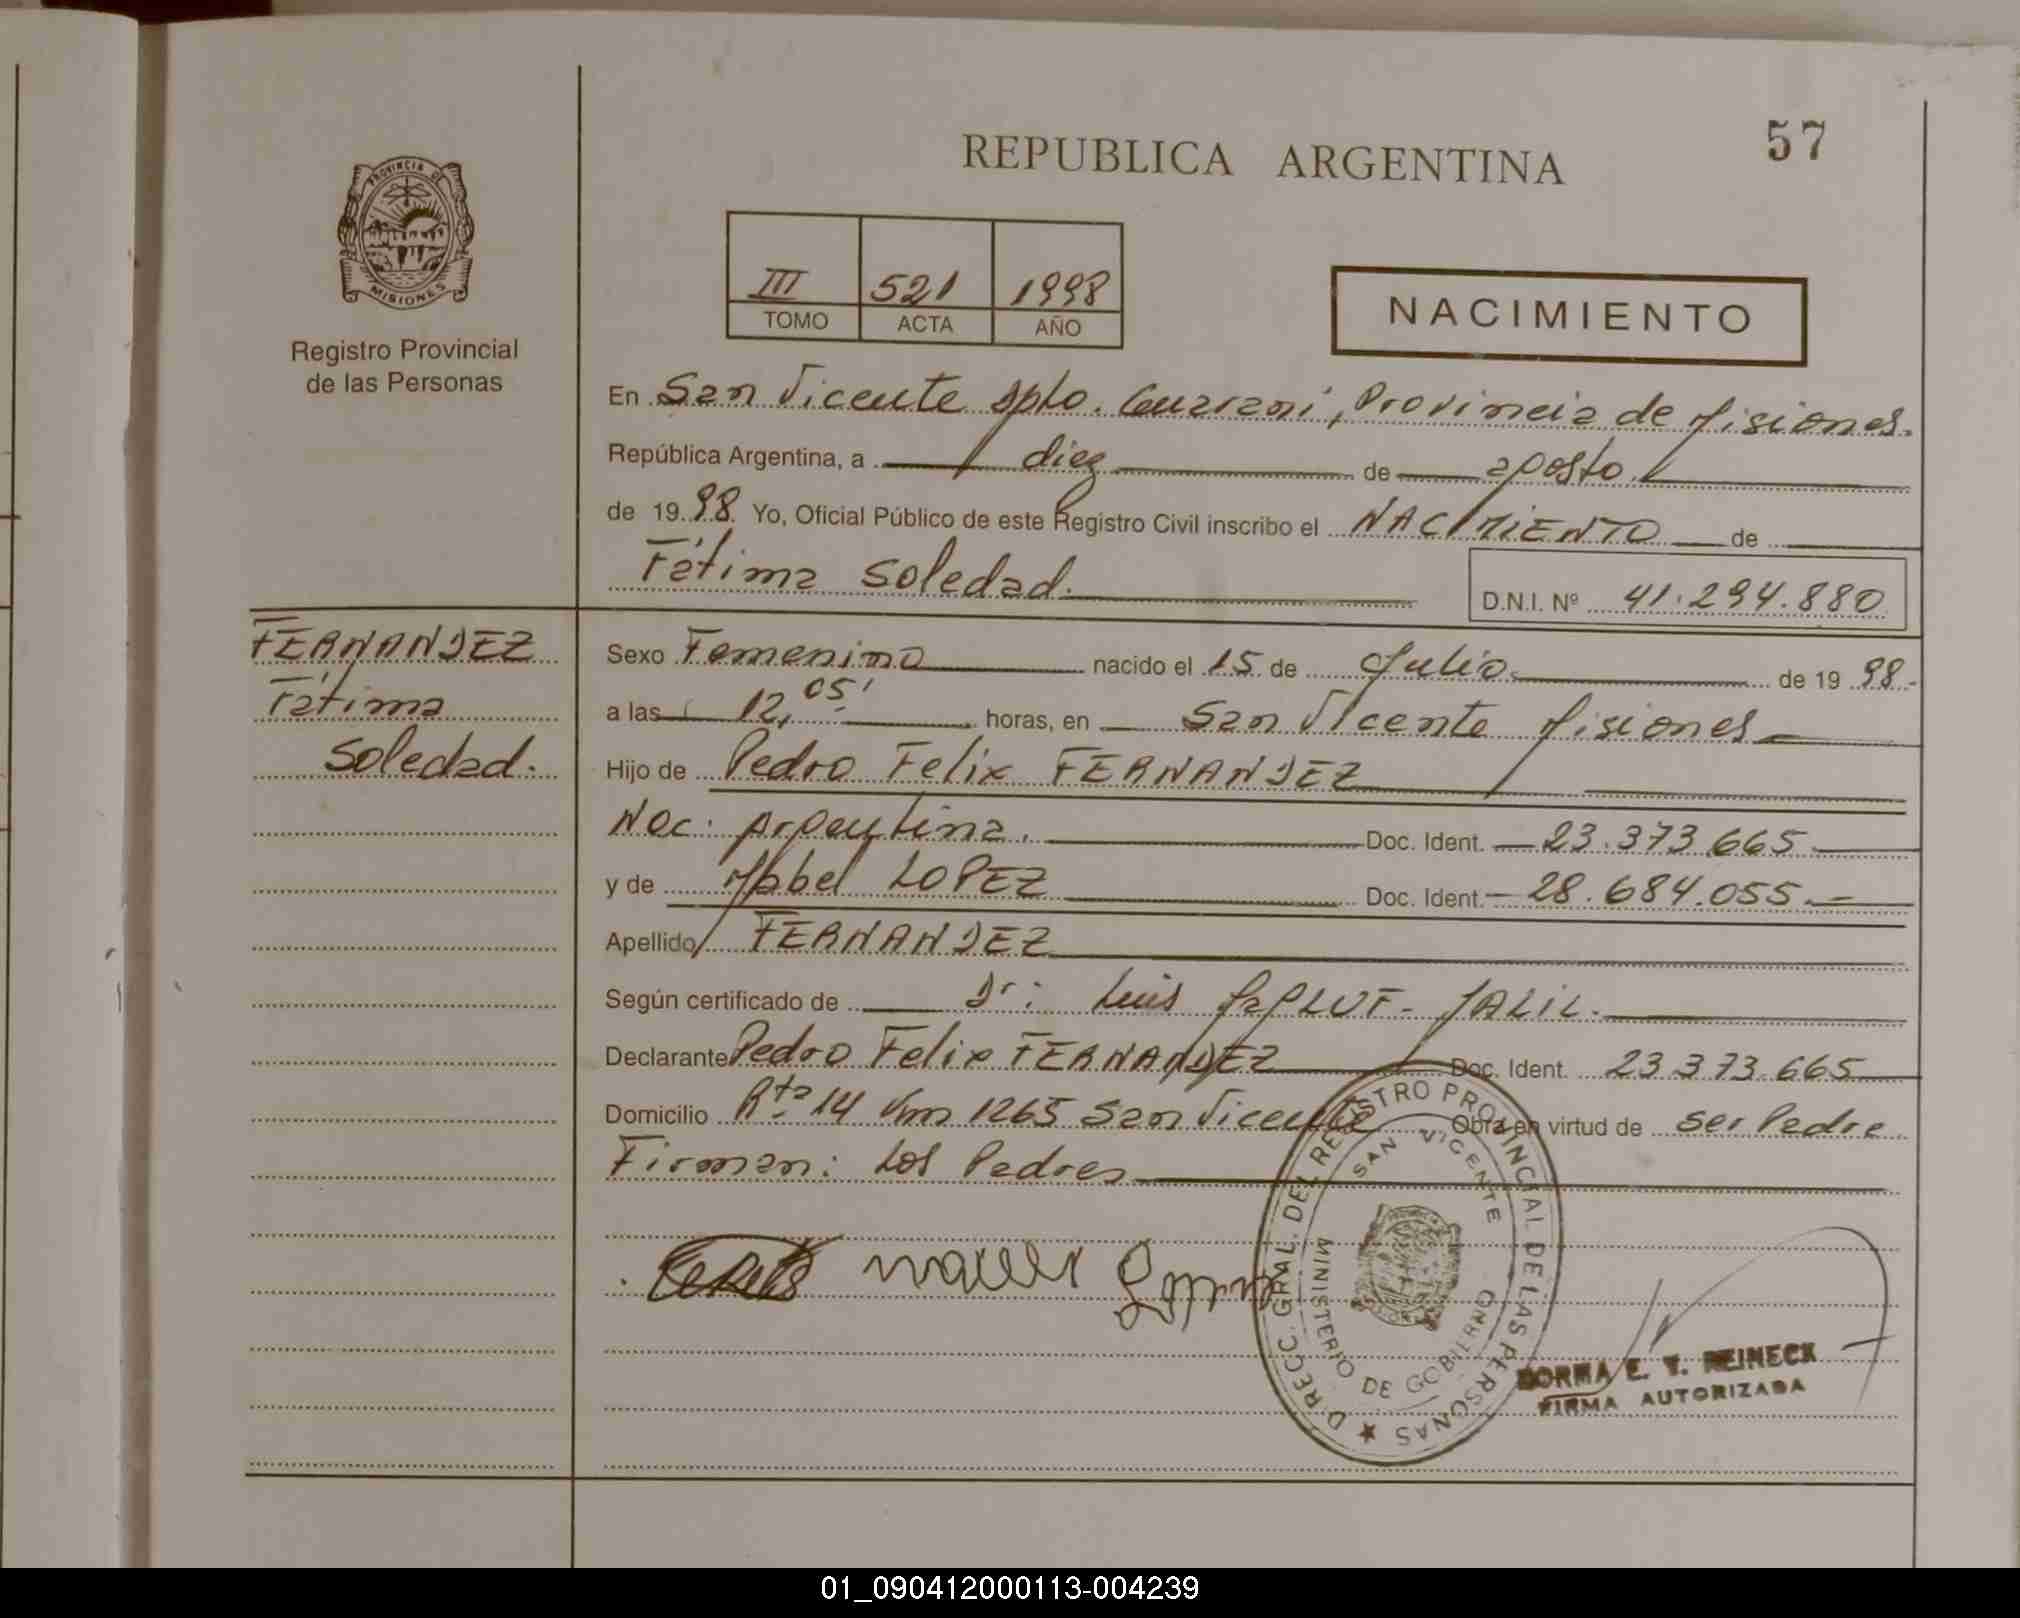 57
REPUBLICA ARGENTINA
PROVINCIA DE
MISIONES
Registro Provincial
de las Personas
III 521 1998
TOMO ACTA AÑO
NACIMIENTO
En San Vicente Dpto. Guarani, Provincia de Misiones.
República Argentina, a diez de agosto
de 1998 Yo, Oficial Público de este Registro Civil inscribo el NACIMIENTO de
Fátima Soledad.
D.N.I. Nº 41.294.880
FERNANDEZ
Fátima
Soledad.
Sexo Femenino nacido el 15 de Julio de 1998.-
a las 12,05' horas, en San Vicente Misiones
Hijo de Pedro Felix FERNANDEZ
Nac: Argentina. Doc. Ident. 23.373.665.
y de Mabel LOPEZ Doc. Ident. 28.684.055.-
Apellido FERNANDEZ
Según certificado de Dr: Luis JALIL.
Declarante Pedro Felix FERNANDEZ Doc. Ident. 23.373.665
Domicilio Rta 14 Km 1265 San Vicente Obra en virtud de ser Padre
Firman: Los Padres
DIRECC. GRAL. DEL REGISTRO PROVINCIAL DE LAS PERSONAS
SAN VICENTE
MINISTERIO DE GOBIERNO
E. REINECK
FIRMA AUTORIZADA
01_090412000113-004239